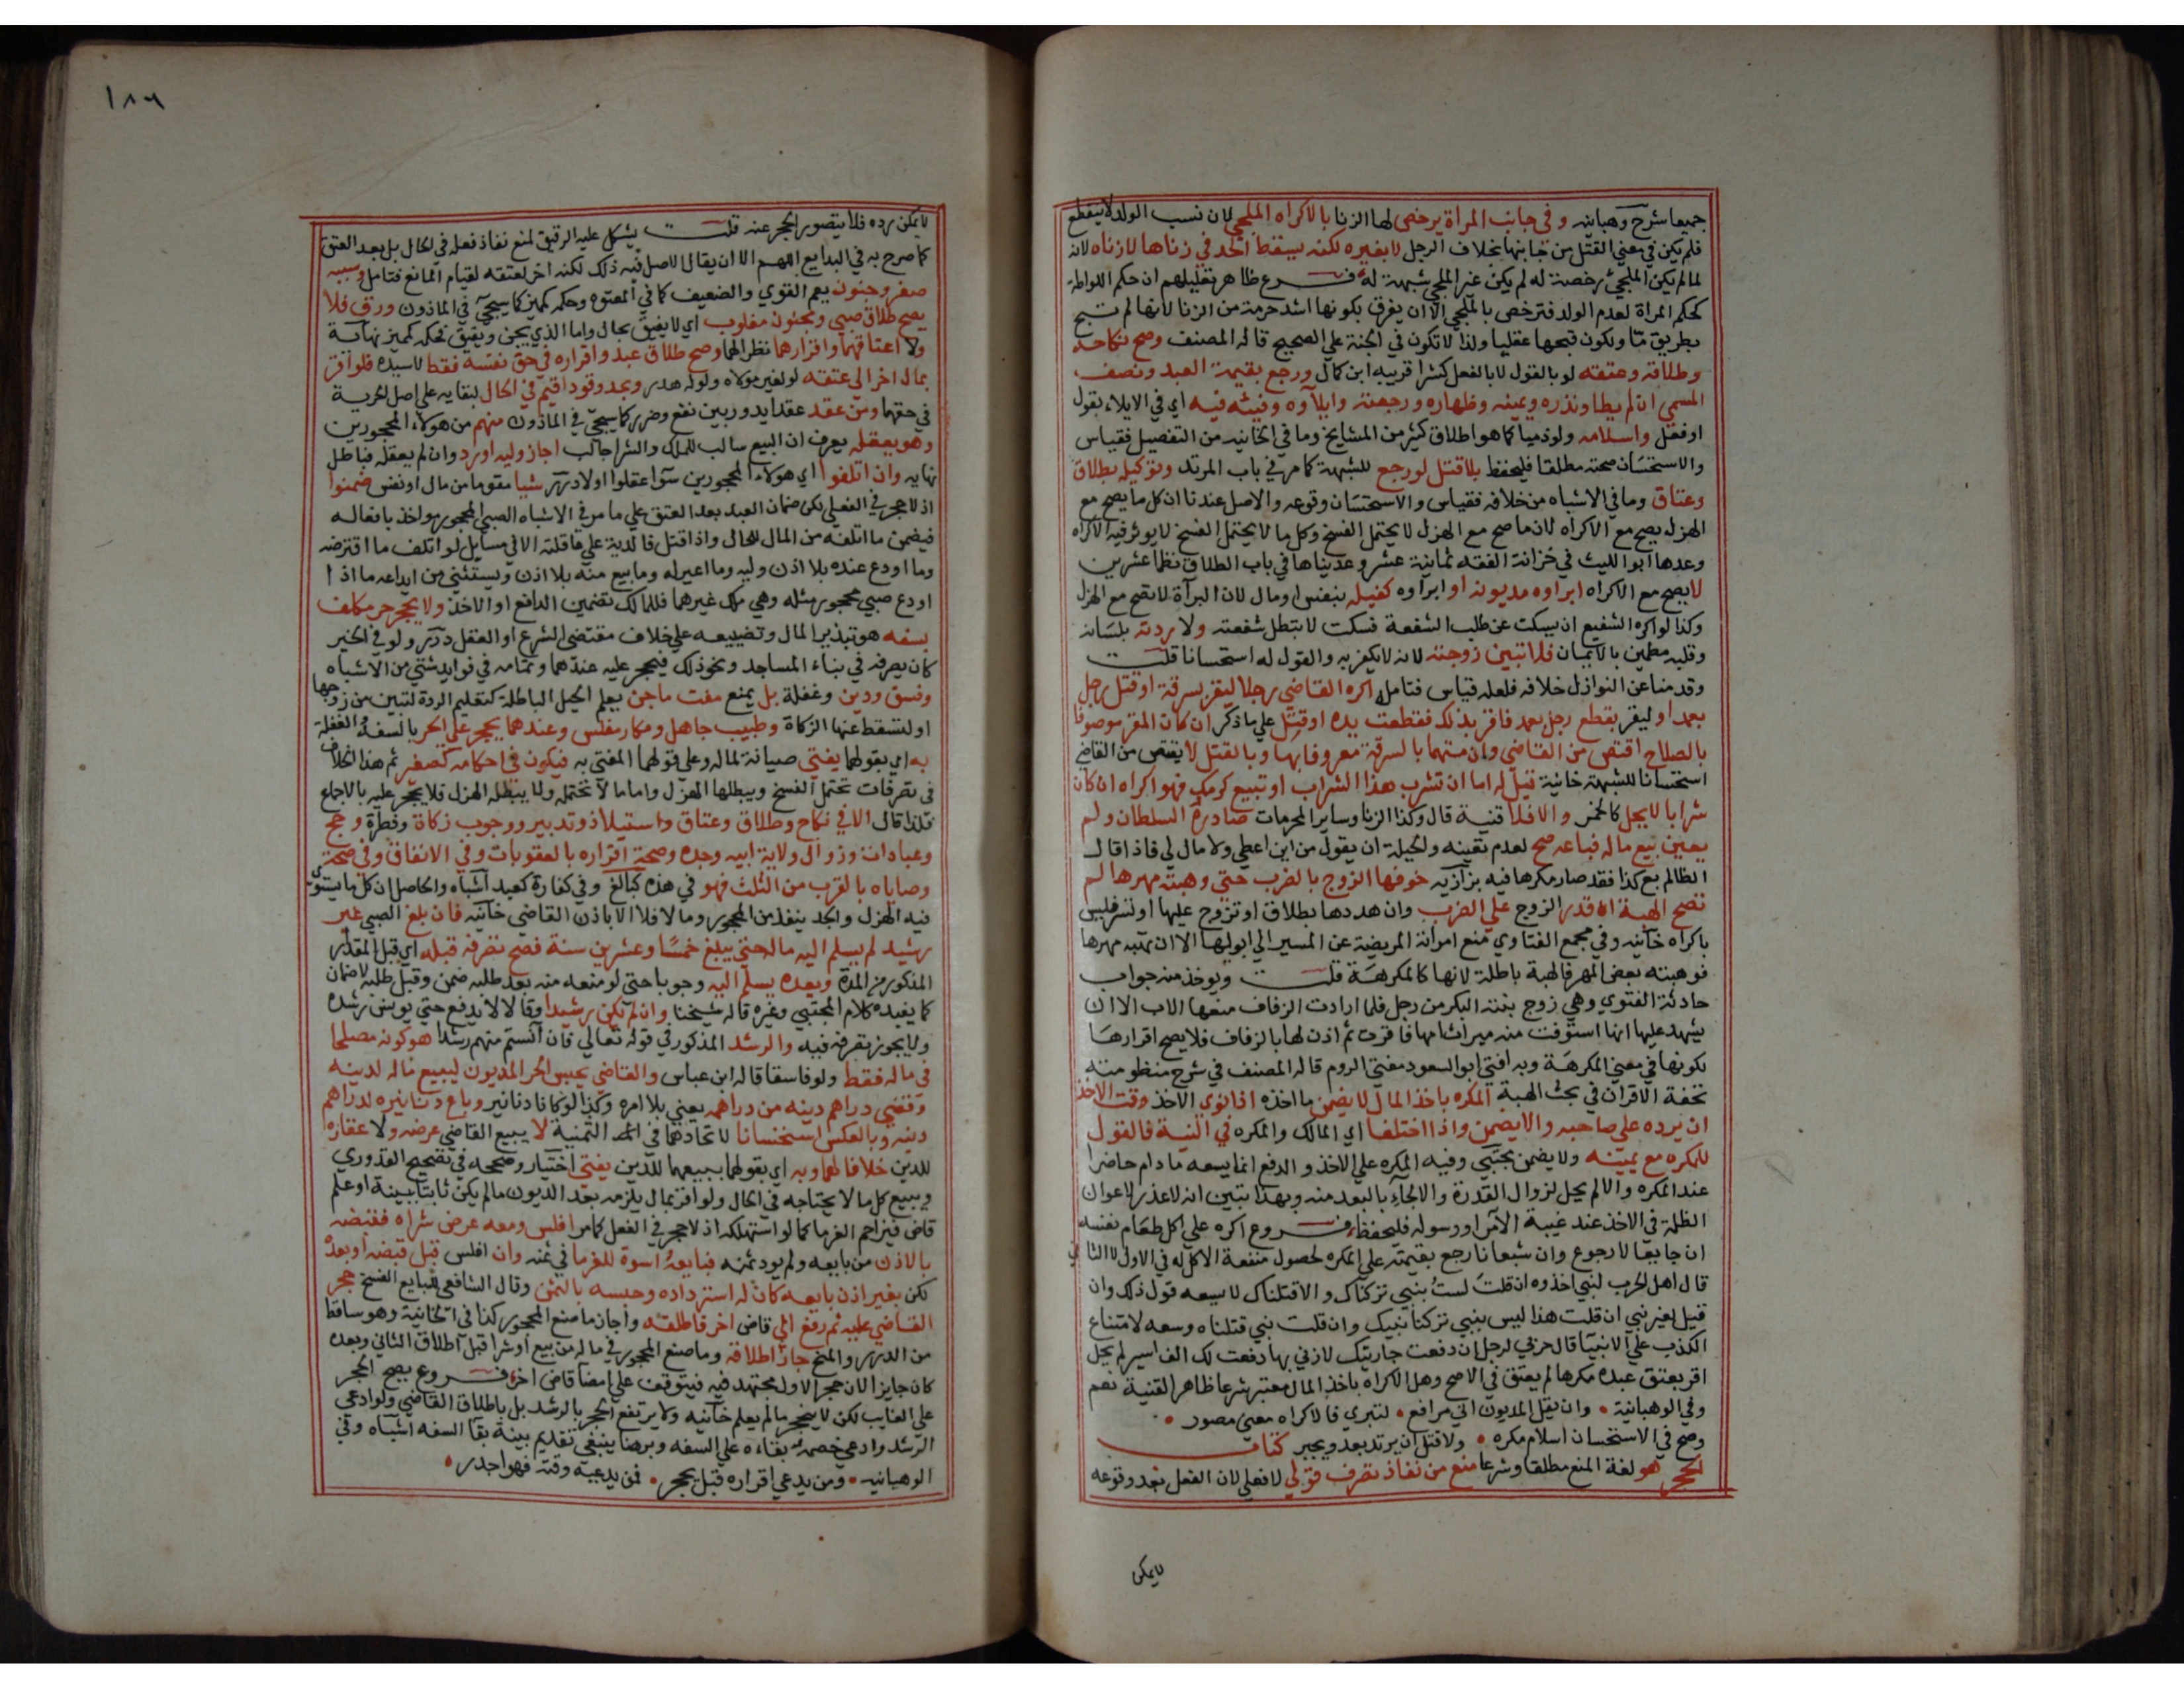 جميعا شرح وهبانيه وفى جانب المراة يرخص لها الزنا بالاكراه الملجي لان نسب الولد لا ينقطع
فلم يكن في معني القتل من جانبها بخلاف الرجل لا بغيره لكنه يسقط الحد في زناها لا زناه لانه
لما لم يكن الملجي رخصة له لم يكن غير الملجي شبهة له فرع ظاهر تعليلهم ان حكم اللواطة
كحكم المراة لعدم الولد فترخص بالملجي الا ان يفرق بكونها اشد حرمة من الزنا لانها لم تبح
بطريق ما ولكون قبحها عقليا ولذا لا تكون في الجنة علي الصحيح قاله المصنف وصح نكاحه
وطلاقه وعتقه لو بالقول لا بالفعل كشرا قريبه ابن كمال ورجع بقيمة العبد ونصف
المسمي ان لم يطا ونذره ويمينه وظهاره ورجعته وايلاوه وفيئه فيه اي في الايلاء بقول
او فعل واسلامه ولو ذميا كما هو اطلاق كثير من المشايخ وما في الخانيه من التفصيل فقياس
والاستحسان صحته مطلقا فليحفظ بلا قتل لو رجع للشبهة كما مر في باب المرتد وتوكيله بطلاق
وعتاق وما في الاشباه من خلافه فقياس والاستحسان وقوعه والاصل عندنا ان كل ما يصح مع
الهزل يصح مع الاكراه لان ما صح مع الهزل لا يحتمل الفسخ وكل ما لا يحتمل الفسخ لا يوثر فيه الاكراه
وعدها ابو الليث في خزانة الفقه ثمانية عشر وعديناها في باب الطلاق نظما عشرين
لا يصح مع الاكراه ابراوه مديونه او ابراوه كفيله بنفس او مال لان البرآة لا تصح مع الهزل
وكذا لو اكره الشفيع ان يسكت عن طلب الشفعة فسكت لا تبطل شفعته ولا ردته بلسانه
وقلبه مطمين بالايمان فلا تبين زوجته لانه لا يكفر به والقول له استحسانا قلت
وقدمنا عن النوازل خلافه فلعله قياس فتامل اكره القاضي رجلا ليقر بسرقة او قتل رجل
بعمد او ليقر بقطع رجل بعمد فاقر بذلك فقطعت يده او قتل علي ما ذكر ان كان المقر موصوفا
بالصلاح اقتص من القاضي وان متهما بالسرقة معروفا بها وبالقتل لا يقتص من القاضي
استحسانا للشبهة خانية قيل له اما ان تشرب هذا الشراب او تبيع كرمك فهو اكراه ان كان
شرابا لا يحل كالخمر والا فلا قنية قال وكذا الزنا وساير المحرمات صادره السلطان ولم
يعين بيع ماله فباعه صح لعدم تعينه والحيلة ان يقول من اين اعطي ولا مال لي فاذا قال
الظالم بع كذا فقد صار مكرها فيه بزازيه خوفها الزوج بالضرب حتي وهبته مهرها لم
تصح الهبة ان قدر الزوج علي الضرب وان هددها بطلاق او تزوج عليها او تسر فليس
باكراه خانيه وفي مجمع الفتاوي منع امراته المريضة عن المسير الي ابويها الا ان تهبه مهرها
فوهبته بعض المهر فالهبة باطلة لانها كالمكرهة قلت ويوخذ منه جواب
حادثة الفتوي وهي زوج بنته البكر من رجل فلما ارادت الزفاف منعها الاب الا ان
يشهد عليها انها استوفت منه ميراث امها فاقرت ثم اذن لها بالزفاف فلا يصح اقرارها
لكونها في معني المكرهة وبه افتي ابو السعود مفتي الروم قاله المصنف في شرح منظومته
تحفة الاقران في بحث الهبة المكره باخذ المال لا يضمن ما اخذه اذا نوي الاخذ وقت الاخذ
ان يرده علي صاحبه والا يضمن واذا اختلفا اي المالك والمكره في النية فالقول
للمكره مع يمينه ولا يضمن مجتبي وفيه المكره علي الاخذ والدفع انما يسعه ما دام حاضرا
عند المكره والا لم يحل لزوال القدرة والالجاء بالبعد منه وبهذا تبين انه لا عذر لاعوان
الظلمة في الاخذ عند غيبة الآمر او رسوله فليحفظ فروع اكره علي اكل طعام نفسه
ان جايعا لا رجوع وان شبعانا رجع بقيمته علي المكره لحصول منفعة الاكل له في الاول لا الثاني
قال اهل الحرب لنبي اخذوه ان قلت لست بنبي تركناك والا قتلناك لا يسعه قول ذلك وان
قيل لغير نبي ان قلت هذا ليس بنبي تركنا نبيك وان قلت نبي قتلناه وسعه لامتناع
الكذب علي الانبيا قال حربي لرجل ان دفعت جاريتك لازني بها دفعت لك الف اسير لم يحل
اقر بعتق عبده مكرها لم يعتق في الاصح وهل الاكراه باخذ المال معتبر شرعا ظاهر القنية نعم
وفي الوهبانية • وان يقل المديون اني مرافع • لتبري فالاكراه معني مصور •
وصح في الاستحسان اسلام مكره • ولا قتل ان يرتد بعد ويجبر كتاب
الحجر هو لغة المنع مطلقا وشرعا منع من نفاذ تصرف قولي لا فعلي لان الفعل بعد وقوعه
لا يمكن
١٨٦
لا يمكن رده فلا يتصور الحجر عنه قلت يشكل عليه الرقيق لمنع نفاذ فعله في الحال بل بعد العتق
كما صرح به في البدايع اللهم الا ان يقال الاصل فيه ذلك لكنه اخر لعتقه لقيام المانع فتامل وسببه
صغر وجنون يعم القوي والضعيف كما في المعتوه وحكمه كمميز كما سيجيء في الماذون ورق فلا
يصح طلاق صبي ومجنون مغلوب اي لا يفيق بحال واما الذي يجن ويفيق فحكمه كمميز نهاية
ولا اعتاقهما واقرارهما نظرا لهما وصح طلاق عبد واقراره في حق نفسه فقط لا سيده فلو اقر
بمال اخر الي عتقه لو لغير مولاه ولو له هدر وبحد وقود اقيم في الحال لبقايه علي اصل الحرية
في حقهما ومن عقد عقدا يدور بين نفع وضرر كما سيجيء في الماذون منهم من هولاء المحجورين
وهو يعقله يعرف ان البيع سالب للملك والشرا جالب اجاز وليه او رد وان لم يعقله فباطل
نهايه وان اتلفوا اي هولاء المحجورين سواء عقلوا او لا درر شيا مقوما من مال او نفس ضمنوا
اذ لا حجر في الفعلي لكن ضمان العبد بعد العتق علي ما مر في الاشباه الصبي المحجور مواخذ بافعاله
فيضمن ما اتلفه من المال للحال واذا قتل فالدية علي عاقلته الا في مسايل لو اتلف ما اقترضه
وما اودع عنده بلا اذن وليه وما اعير له وما بيع منه بلا اذن ويستثني من ايداعه ما اذا
اودع صبي محجور مثله وهي ملك غيرهما فللمالك تضمين الدافع او الاخذ ولا يحجر حر مكلف
بسفه هو تبذير المال وتضييعه علي خلاف مقتضي الشرع او العقل درر ولو في الخير
كان يصرفه في بناء المساجد ونحو ذلك فيحجر عليه عندهما وتمامه في فوايد شتي من الاشباه
وفسق ودين وغفلة بل يمنع مفت ماجن يعلم الحيل الباطلة كتعليم الردة لتبين من زوجها
او لتسقط عنها الزكاة وطبيب جاهل ومكار مفلس وعندهما يحجر علي الحر بالسفه والغفلة
به اي بقولهما يفتي صيانة لماله وعلي قولهما المفتي به فيكون في احكامه كصغير ثم هذا الخلاف
في تصرفات تحتمل الفسخ ويبطلها الهزل واما ما لا تحتمله ولا يبطله الهزل فلا يحجر عليه بالاجماع
فلذا قال الا في نكاح وطلاق وعتاق واستيلاد وتدبير ووجوب زكاة وفطرة وحج
وعبادات وزوال ولاية ابيه وجده وصحة اقراره بالعقوبات وفي الانفاق وفي صحة
وصاياه بالقرب من الثلث فهو في هذه كبالغ وفي كفارة كعبد اشباه والحاصل ان كل ما يستوي
فيه الهزل والجد ينفذ من المحجور وما لا فلا الا باذن القاضي خانيه فان بلغ الصبي غير
رشيد لم يسلم اليه ماله حتي يبلغ خمسا وعشرين سنة فصح تصرفه قبله اي قبل المقدار
المذكور من المدة وبعده يسلم اليه وجوبا حتي لو منعه منه بعد طلبه ضمن وقبل طلبه لا ضمان
كما يفيده كلام المجتبي وغيره قاله شيخنا وان لم يكن رشيدا وقالا لا يدفع حتي يونس رشده
ولا يجوز تصرفه فيه والرشد المذكور في قوله تعالي فان آنستم منهم رشدا هو كونه مصلحا
في ماله فقط ولو فاسقا قاله ابن عباس والقاضي يحبس الحر المديون ليبيع ماله لدينه
وقضي دراهم دينه من دراهمه يعني بلا امره وكذا لو كانا دنانير وباع دنانيره لدراهم
دينه وبالعكس استحسانا لاتحادهما في الثمنية لا يبيع القاضي عرضه ولا عقاره
للدين خلافا لهما وبه اي بقولهما ببيعهما للدين يفتي اختيار وصححه في تصحيح القدوري
ويبيع كل ما لا يحتاجه في الحال ولو اقر بمال يلزمه بعد الديون ما لم يكن ثابتا ببينة او علم
قاض فيزاحم الغرما كما لو استهلكه اذ لا حجر في الفعل كما مر افلس ومعه عرض شراه فقبضه
بالاذن من بايعه ولم يود ثمنه فبايعه اسوة للغرما في ثمنه وان افلس قبل قبضه او بعده
لكن بغير اذن بايعه كان له استرداده وحبسه بالثمن وقال الشافعي للبايع الفسخ حجر
القاضي عليه ثم رفع الي قاض اخر فاطلقه واجاز ما صنع المحجور كذا في الخانية وهو ساقط
من الدرر والمنح جاز اطلاقه وما صنع المحجور في ماله من بيع او شرا قبل اطلاق الثاني وبعده
كان جايزا لان حجر الاول مجتهد فيه فيتوقف علي امضا قاض اخر فروع يصح الحجر
علي الغايب لكن لا ينحجر ما لم يعلم خانيه ولا يرتفع الحجر بالرشد بل باطلاق القاضي ولو ادعي
الرشد وادعي خصمه بقاءه علي السفه وبرهنا ينبغي تقديم بينة بقا السفه اشباه وفي
الوهبانيه • ومن يدعي اقراره قبل يحجر • فمن يدعيه وقته فهو اجدر •